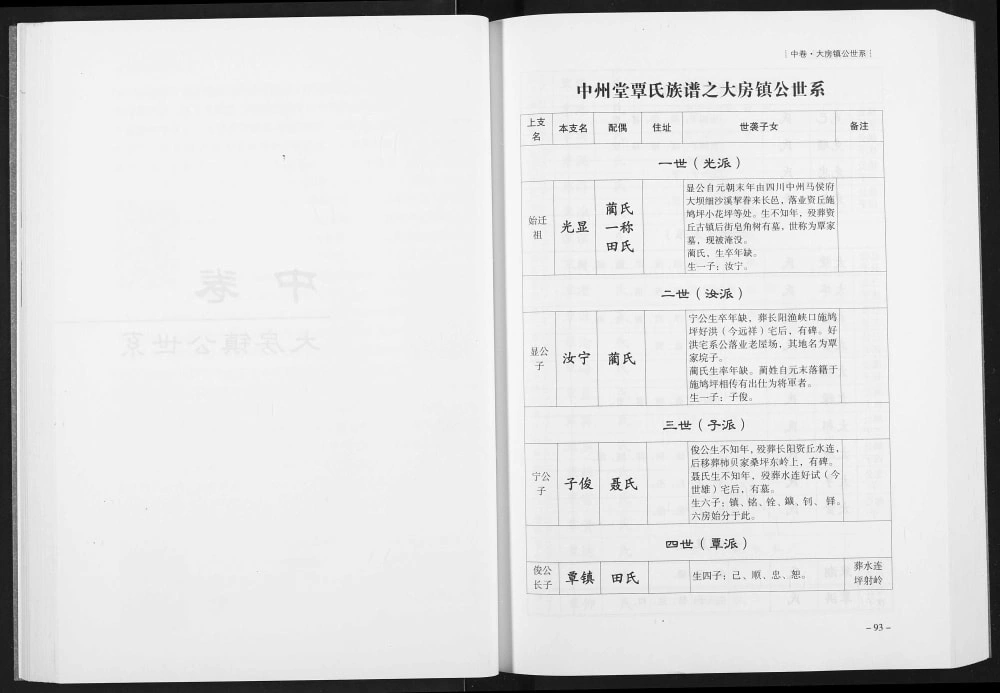 中卷·大房镇公世系
中州堂覃氏族谱之大房镇公世系
上支名 本支名 配偶 住址 世袭子女 备注
一世（光派）
始迁祖 光显 蔺氏一称田氏
显公自元朝末年由四川中州马侯府
大坝细沙溪挈眷来长邑，落业资丘施
鸠坪小花坪等处。生不知年，殁葬资
丘古镇后街皂角树有墓，世称为覃家
墓，现被淹没。
蔺氏，生卒年缺。
生一子：汝宁。
二世（汝派）
显公子 汝宁 蔺氏
宁公生卒年缺，葬长阳渔峡口施鸠
坪好洪（今远祥）宅后，有碑。好
洪宅系公落业老屋场，其地名为覃
家垸子。
蔺氏生率年缺。蔺姓自元末落籍于
施鸠坪相传有出仕为将军者。
生一子：子俊。
三世（子派）
宁公子 子俊 聂氏
俊公生不知年，殁葬长阳资丘水连，
后移葬柿贝家桑坪东岭上，有碑。
聂氏生不知年，殁葬水连好试（今
世雄）宅后，有墓。
生六子：镇、铭、铨、钊、铎。
六房始分于此。
四世（覃派）
俊公长子 覃镇 田氏 生四子：己、顺、忠、恕。 葬水连坪射岭
– 93 –
中卷
大房镇公世系